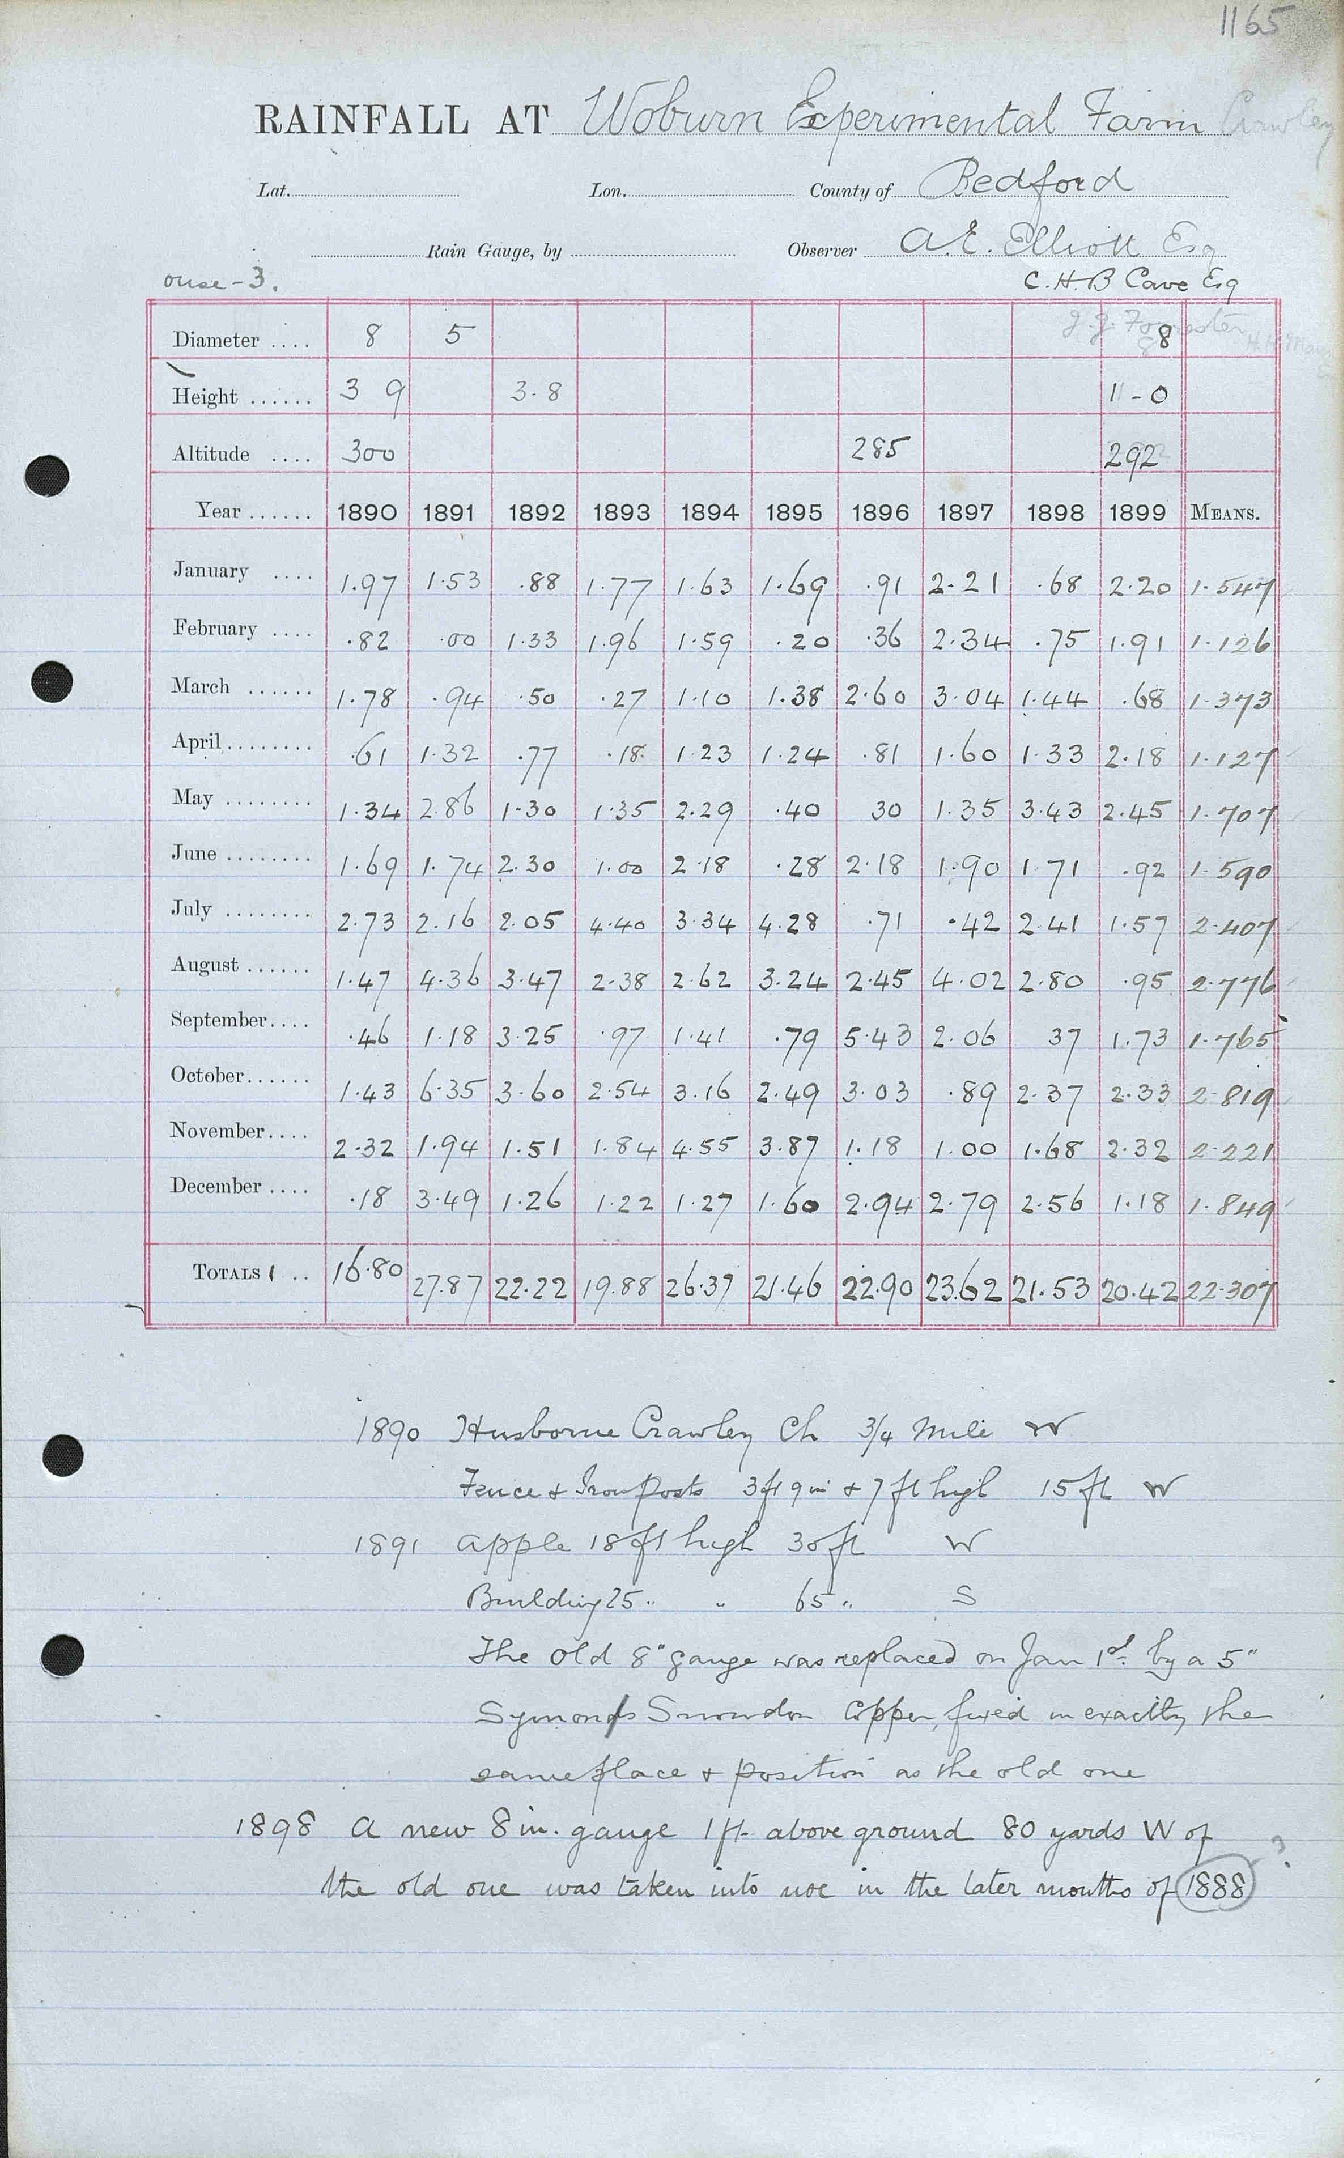 1165
RAINFALL AT Woburn Experimental Farm Crawley
Lat. Lon. County of Bedford
Rain Gauge, by Observer A.E. Elliott Esq
ouse-3. C.H.B Cave Esq
J.J. Forrester
Diameter .... 8 5 8
Height ...... 3 9 3.8 11-0
Altitude .... 300 285 292
Year ...... 1890 1891 1892 1893 1894 1895 1896 1897 1898 1899 MEANS.
January .... 1.97 1.53 .88 1.77 1.63 1.69 .91 2.21 .68 2.20 1.547
February .... .82 .00 1.33 1.96 1.59 .20 .36 2.34 .75 1.91 1.126
March ...... 1.78 .94 .50 .27 1.10 1.38 2.60 3.04 1.44 .68 1.373
April........ .61 1.32 .77 .18 1.23 1.24 .81 1.60 1.33 2.18 1.127
May ........ 1.34 2.86 1.30 1.35 2.29 .40 30 1.35 3.43 2.45 1.707
June ........ 1.69 1.74 2.30 1.00 2.18 .28 2.18 1.90 1.71 .92 1.590
July ........ 2.73 2.16 2.05 4.40 3.34 4.28 .71 .42 2.41 1.57 2.407
August ...... 1.47 4.36 3.47 2.38 2.62 3.24 2.45 4.02 2.80 .95 2.776
September.... .46 1.18 3.25 .97 1.41 .79 5.43 2.06 37 1.73 1.765
October...... 1.43 6.35 3.60 2.54 3.16 2.49 3.03 .89 2.37 2.33 2.819
November.... 2.32 1.94 1.51 1.84 4.55 3.87 1.18 1.00 1.68 2.32 2.221
December .... .18 3.49 1.26 1.22 1.27 1.60 2.94 2.79 2.56 1.18 1.849
TOTALS .. 16.80 27.87 22.22 19.88 26.37 21.46 22.90 23.62 21.53 20.42 22.307
1890 Husborne Crawley Ch 3/4 Mile W
Fence & Iron Posts 3ft 9in & 7ft high 15ft W
1891 apple 18ft high 30ft W
Building 25 " " 65 " S
The old 8" gauge was replaced on Jan 1st. by a 5"
Symons Snowdon Copper, fixed in exactly the
same place & position as the old one
1898 A new 8in. gauge 1ft. above ground 80 yards W of
the old one was taken into use in the later months of 1888 ?